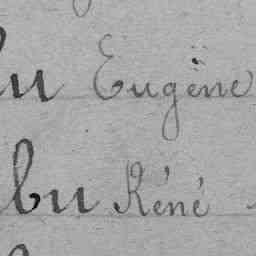 u Eugëne
bu Réné